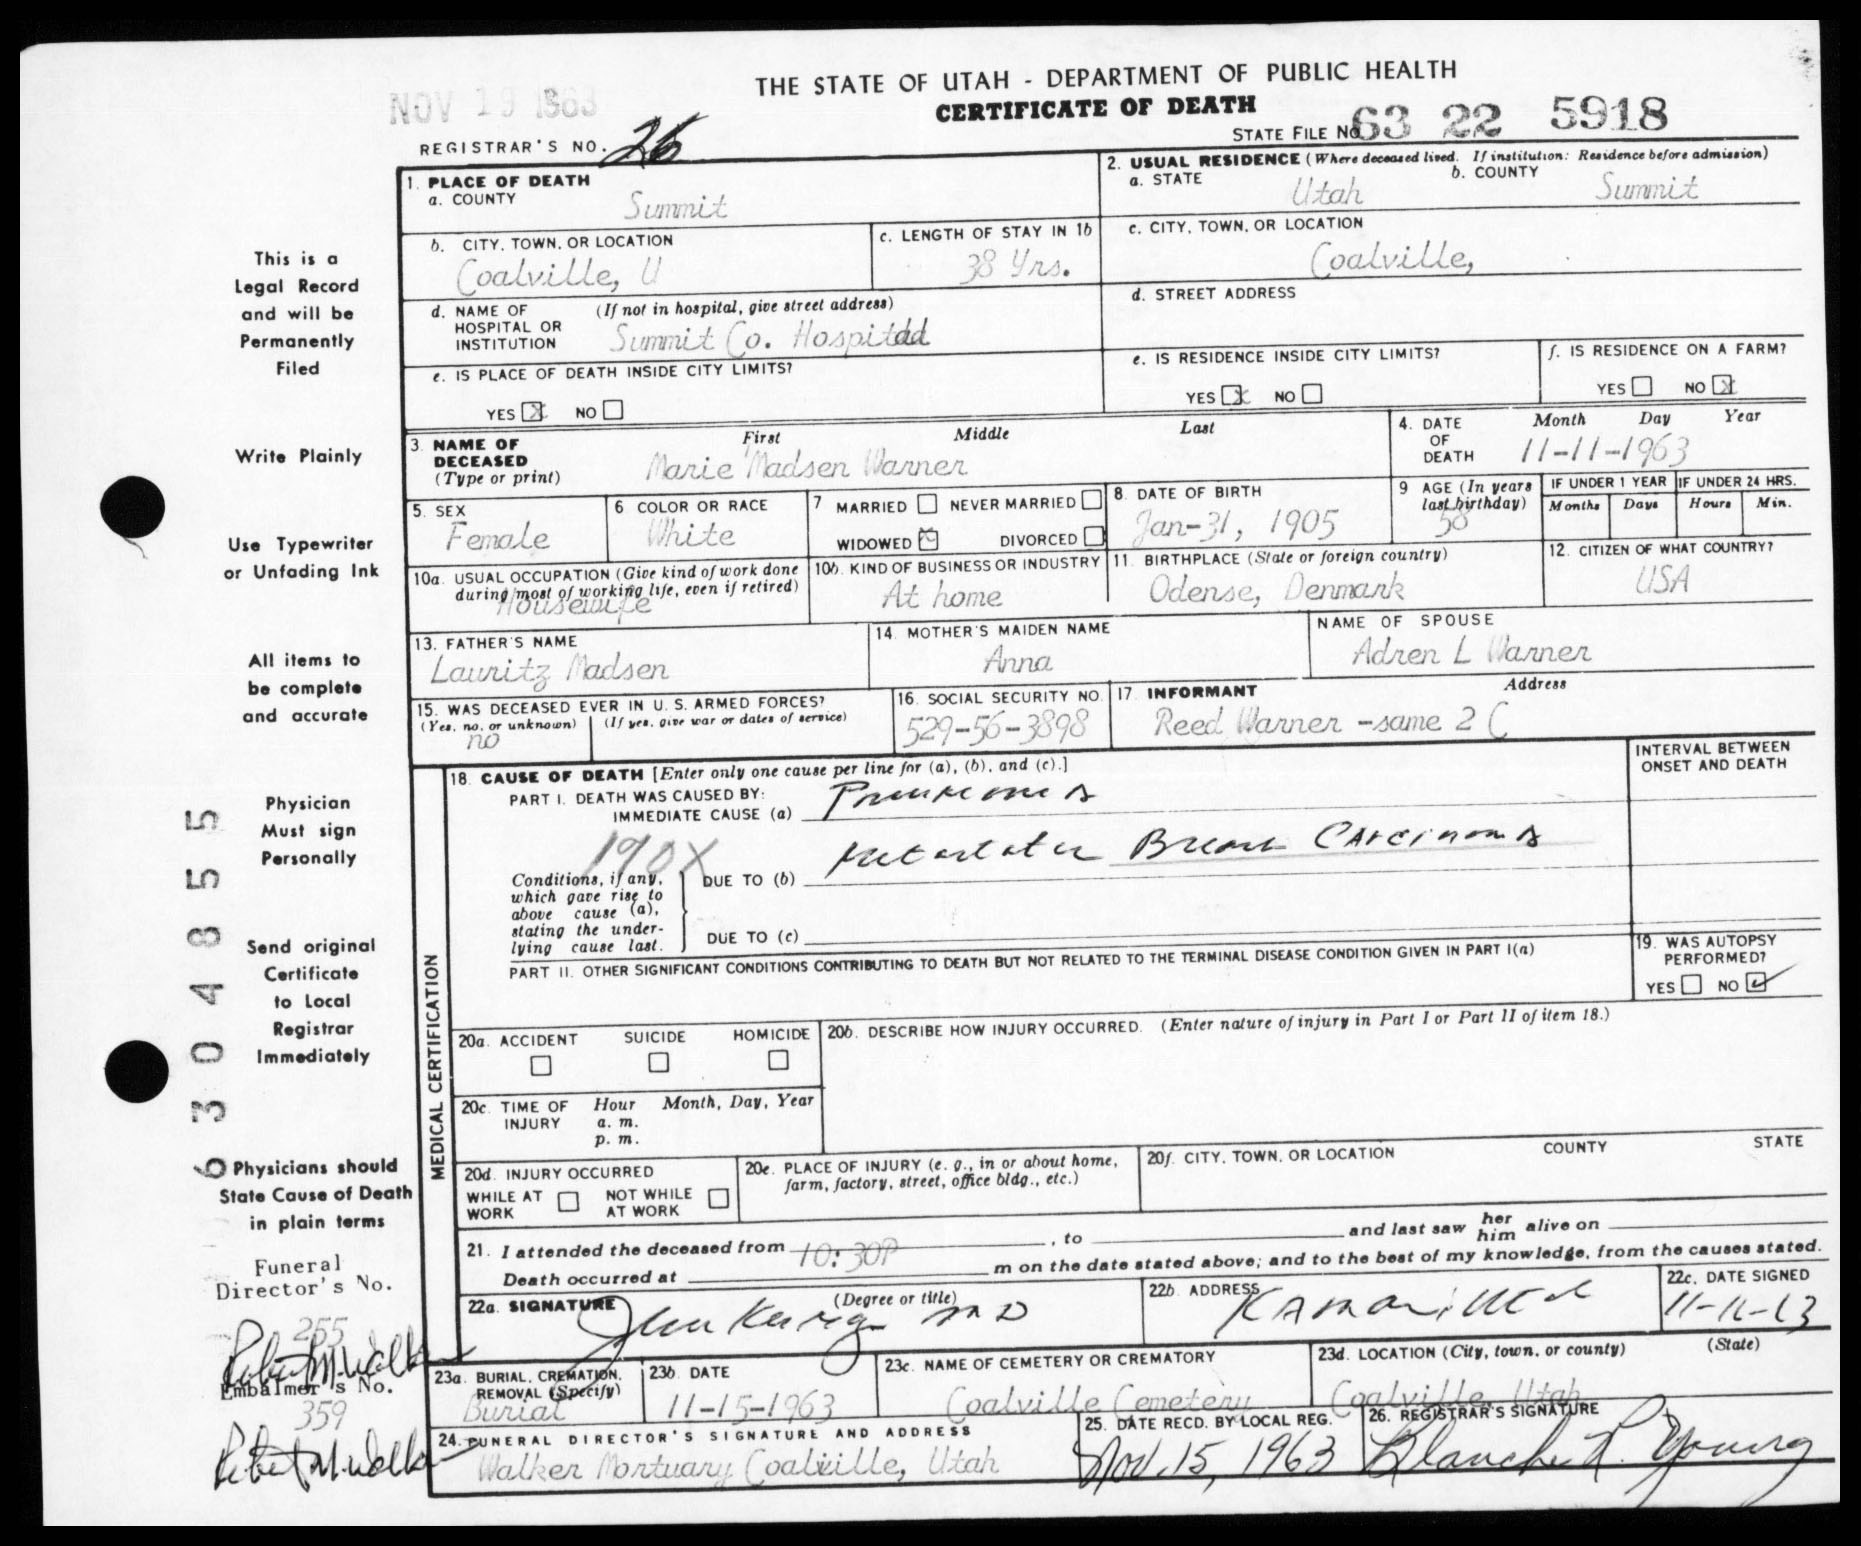 THE STATE OF UTAH - DEPARTMENT OF PUBLIC HEALTH
NOV 19 1963
CERTIFICATE OF DEATH
STATE FILE NO. 63 22 5918
REGISTRAR'S NO. 26
1. PLACE OF DEATH
a. COUNTY Summit
2. USUAL RESIDENCE (Where deceased lived. If institution: Residence before admission)
a. STATE Utah b. COUNTY Summit
b. CITY, TOWN, OR LOCATION Coalville, U
c. LENGTH OF STAY IN 1b 38 Yrs.
c. CITY, TOWN, OR LOCATION Coalville,
d. NAME OF HOSPITAL OR INSTITUTION (If not in hospital, give street address) Summit Co. Hospital
d. STREET ADDRESS
e. IS PLACE OF DEATH INSIDE CITY LIMITS? YES X NO
e. IS RESIDENCE INSIDE CITY LIMITS? YES X NO
f. IS RESIDENCE ON A FARM? YES NO X
3. NAME OF DECEASED (Type or print) First Middle Last
Marie Madsen Warner
4. DATE OF DEATH Month Day Year
11-11-1963
5. SEX Female
6 COLOR OR RACE White
7 MARRIED NEVER MARRIED
WIDOWED X DIVORCED
8. DATE OF BIRTH Jan-31, 1905
9 AGE (In years last birthday) 58
IF UNDER 1 YEAR Months Days
IF UNDER 24 HRS. Hours Min.
10a. USUAL OCCUPATION (Give kind of work done during most of working life, even if retired) Housewife
10b. KIND OF BUSINESS OR INDUSTRY At home
11. BIRTHPLACE (State or foreign country) Odense, Denmark
12. CITIZEN OF WHAT COUNTRY? USA
13. FATHER'S NAME Lauritz Madsen
14. MOTHER'S MAIDEN NAME Anna
NAME OF SPOUSE Adren L Warner
15. WAS DECEASED EVER IN U. S. ARMED FORCES?
(Yes, no, or unknown) (If yes, give war or dates of service)
no
16. SOCIAL SECURITY NO. 529-56-3898
17. INFORMANT Address
Reed Warner -same 2 C
MEDICAL CERTIFICATION
18. CAUSE OF DEATH [Enter only one cause per line for (a), (b), and (c).]
INTERVAL BETWEEN ONSET AND DEATH
PART I. DEATH WAS CAUSED BY:
IMMEDIATE CAUSE (a) Pneumonia
190X
Conditions, if any, which gave rise to above cause (a), stating the underlying cause last.
DUE TO (b) Metastatic Breast Carcinoma
DUE TO (c)
PART II. OTHER SIGNIFICANT CONDITIONS CONTRIBUTING TO DEATH BUT NOT RELATED TO THE TERMINAL DISEASE CONDITION GIVEN IN PART I(a)
19. WAS AUTOPSY PERFORMED?
YES NO ✓
20a. ACCIDENT SUICIDE HOMICIDE
20b. DESCRIBE HOW INJURY OCCURRED. (Enter nature of injury in Part I or Part II of item 18.)
20c. TIME OF INJURY Hour Month, Day, Year
a. m.
p. m.
20d. INJURY OCCURRED
WHILE AT WORK NOT WHILE AT WORK
20e. PLACE OF INJURY (e. g., in or about home, farm, factory, street, office bldg., etc.)
20f. CITY, TOWN, OR LOCATION COUNTY STATE
21. I attended the deceased from 10:30P , to and last saw her him alive on
Death occurred at m on the date stated above; and to the best of my knowledge, from the causes stated.
22a. SIGNATURE (Degree or title) MD
22b. ADDRESS Kamas, Utah
22c. DATE SIGNED 11-11-63
23a. BURIAL, CREMATION, REMOVAL (Specify) Burial
23b. DATE 11-15-1963
23c. NAME OF CEMETERY OR CREMATORY Coalville Cemetery
23d. LOCATION (City, town, or county) (State) Coalville, Utah
24. FUNERAL DIRECTOR'S SIGNATURE AND ADDRESS
Walker Mortuary Coalville, Utah
25. DATE RECD. BY LOCAL REG. Nov. 15, 1963
26. REGISTRAR'S SIGNATURE Blanche L. Young
This is a
Legal Record
and will be
Permanently
Filed
Write Plainly
Use Typewriter
or Unfading Ink
All items to
be complete
and accurate
Physician
Must sign
Personally
Send original
Certificate
to Local
Registrar
Immediately
Physicians should
State Cause of Death
in plain terms
6304855
Funeral
Director's No.
255
Robert M. Walker
Embalmer's No.
359
Robert M. Walker